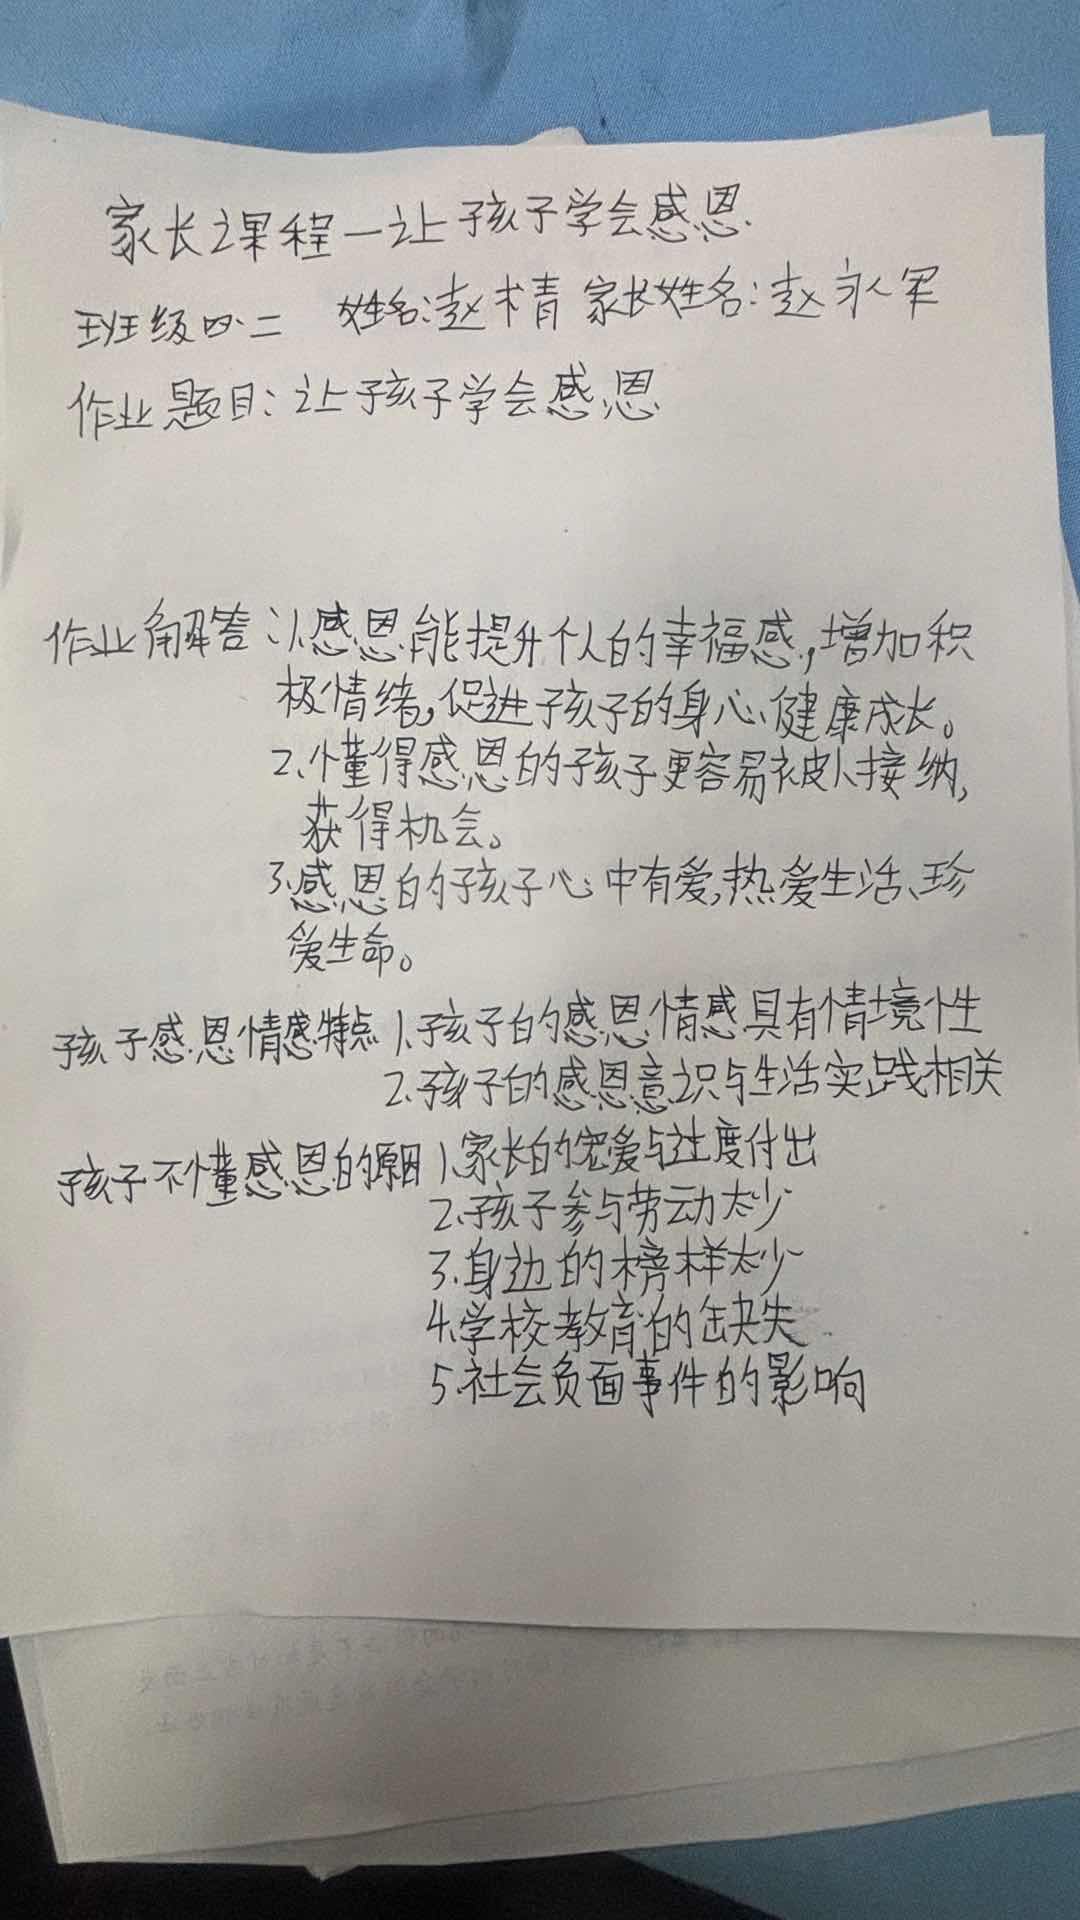 家长课程一让孩子学会感恩.
班级四.二 姓名:赵精 家长姓名:赵永军
作业题目:让孩子学会感恩
作业解答:1.感恩能提升个人的幸福感,增加积
极情绪,促进孩子的身心健康成长。
2.懂得感恩的孩子更容易被人接纳,
获得机会。
3.感恩的孩子心中有爱,热爱生活、珍
爱生命。
孩子感恩情感特点 1.孩子的感恩情感具有情境性
2.孩子的感恩意识与生活实践相关
孩子不懂感恩的原因 1.家长的宠爱与过度付出
2.孩子参与劳动太少
3.身边的榜样太少
4.学校教育的缺失
5.社会负面事件的影响